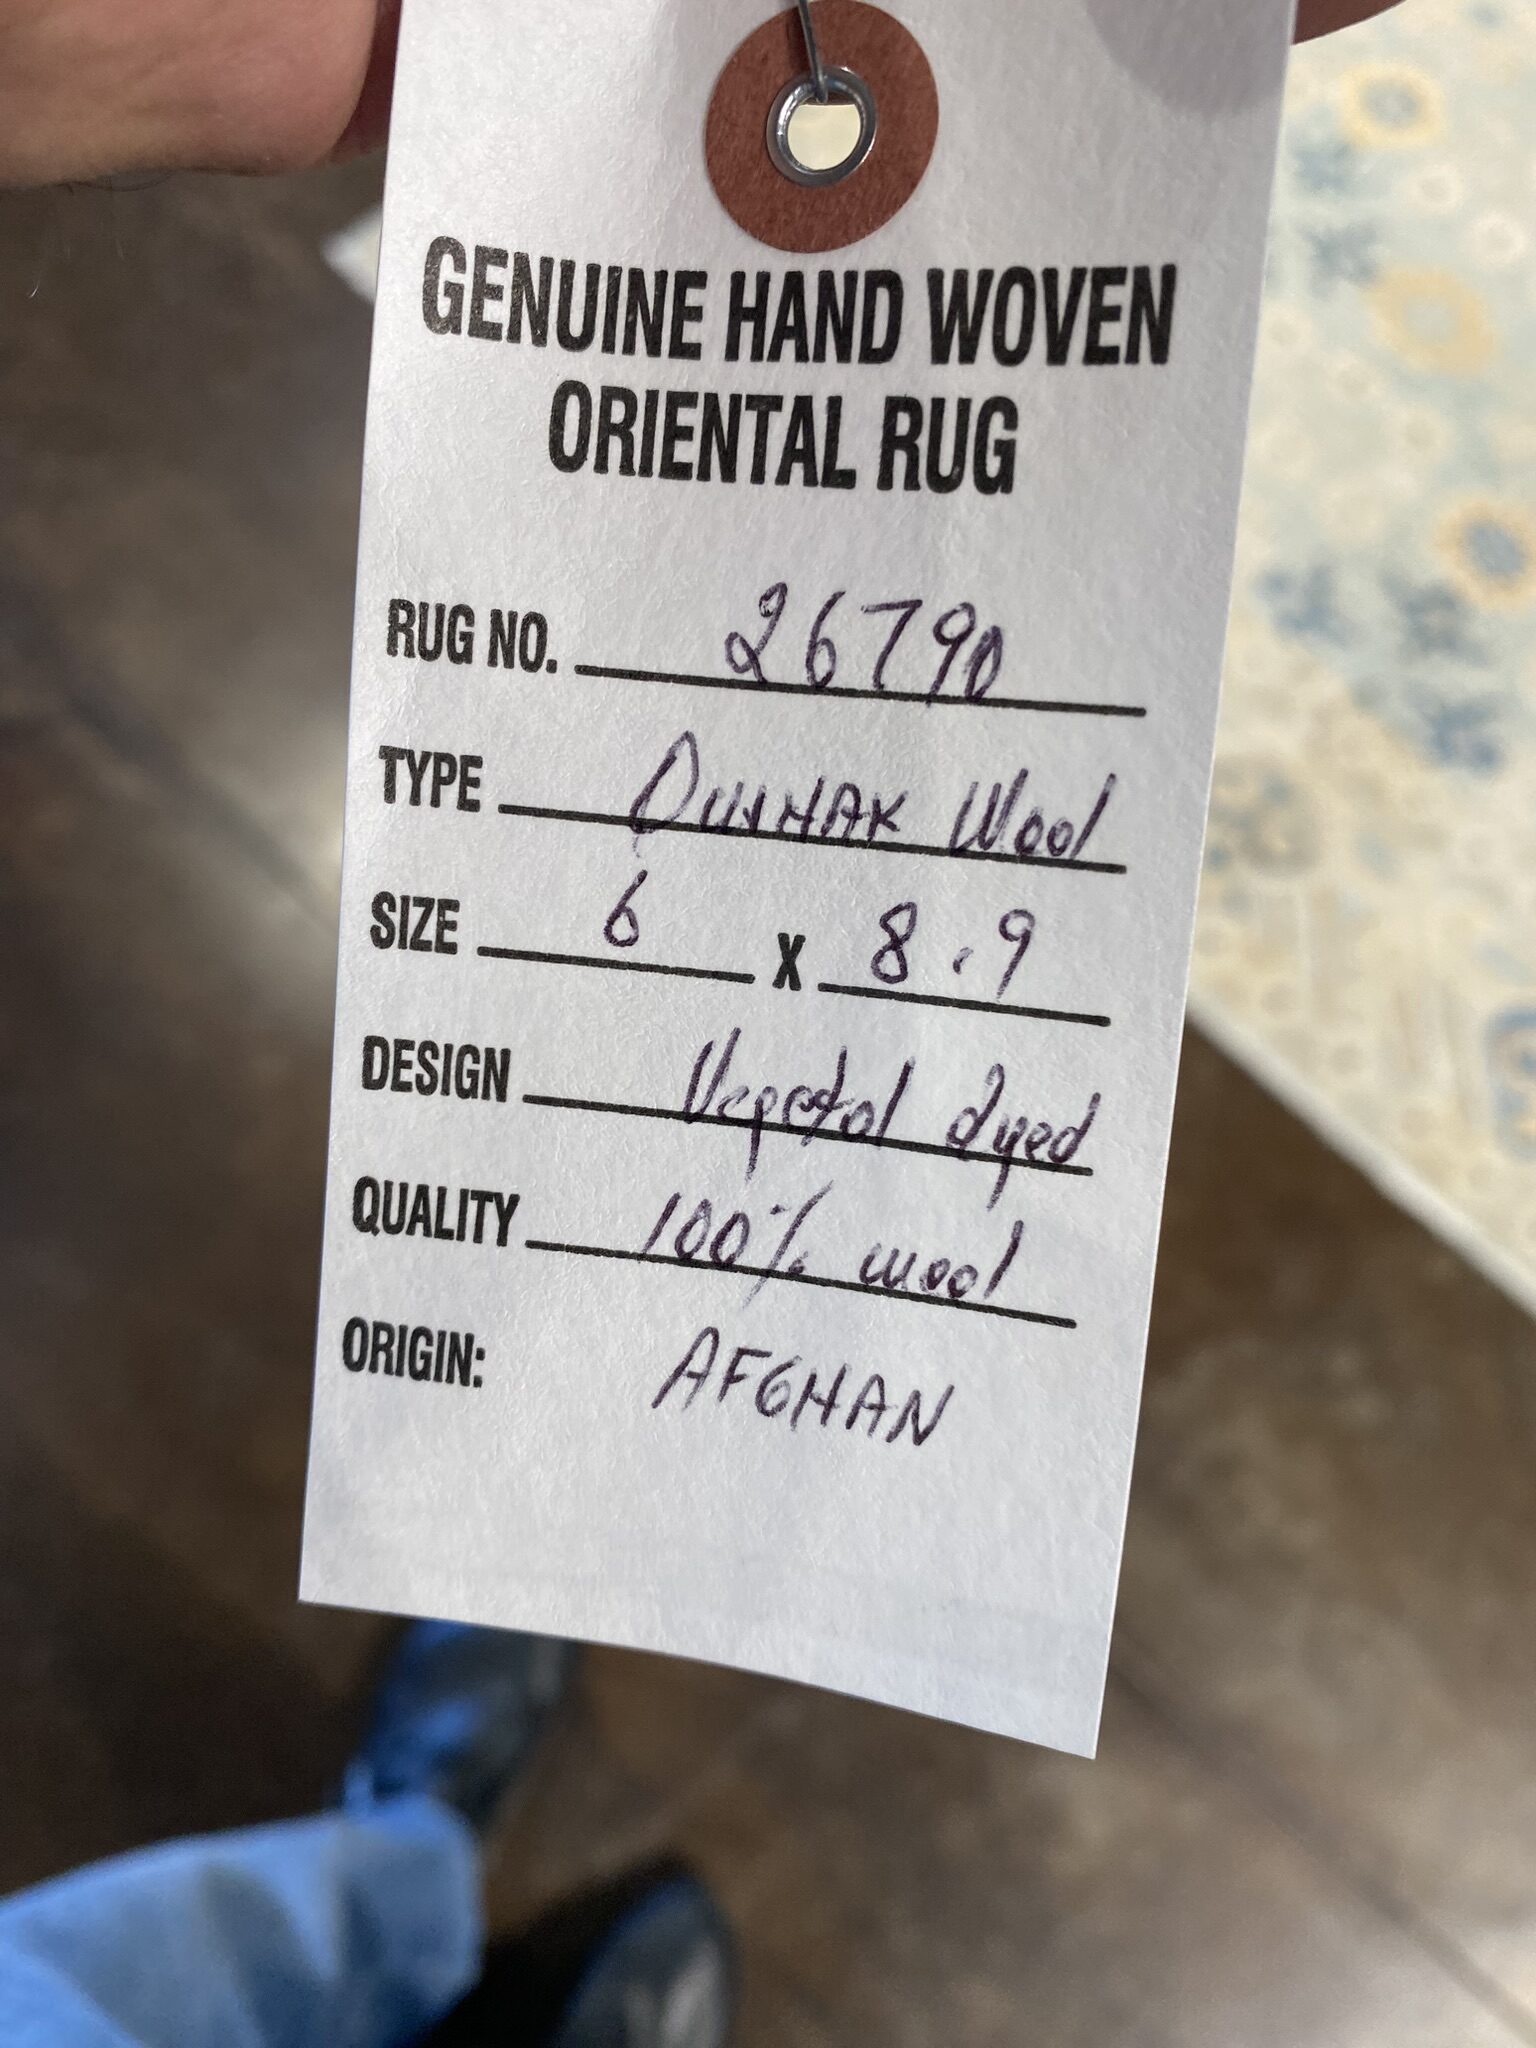 GENUINE HAND WOVEN
ORIENTAL RUG
RUG NO. 26790
TYPE Wool
SIZE 6 X 8.9
DESIGN Vegetal dyed
QUALITY 100% wool
ORIGIN: AFGHAN